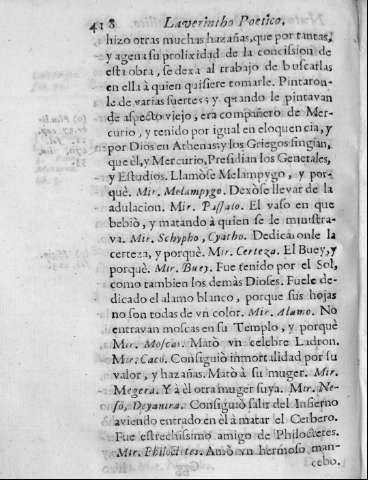 418 Laverintho Poetico.
hizo otras muchas hazañas, que por tantas,
y agena su prolixidad de la concission de
esta obra, se dexa al trabajo de buscarlas
en ella à quien quisiere tomarle. Pintaron-
le de varias suertes; y quando le pintavan
de aspecto viejo, era compañero de Mer-
curio, y tenido por igual en eloquencia, y
por Dios en Athenas; y los Griegos fingian,
que èl, y Mercurio, Presidian los Generales,
y Estudios. Llamòse Melampygo, y por-
què. Mir. Melampygo. Dexòse llevar de la
adulacion. Mir. Passalo. El vaso en que
bebiò, y matando à quien se le ministra-
va. Mir. Schypho, Cyatho. Dedicaronle la
certeza, y porquè. Mir. Certeza. El Buey, y
porquè. Mir. Buey. Fue tenido por el Sol,
como tambien los demàs Dioses. Fuele de-
dicado el alamo blanco, porque sus hojas
no son todas de vn color. Mir. Alamo. No
entravan moscas en su Templo, y porquè
Mir. Moscas. Matò vn celebre Ladron.
Mir. Caco. Consiguiò inmortalidad por su
valor, y hazañas. Matò à su muger. Mir.
Megera. Y à èl otra muger suya. Mir. Ne-
so, Deyanira. Consiguiò salir del Infierno
aviendo entrado en èl à matar el Cerbero.
Fue estrechissimo amigo de Philoctetes.
Mir. Philoctetes. Amò vn hermoso man-
cebo.